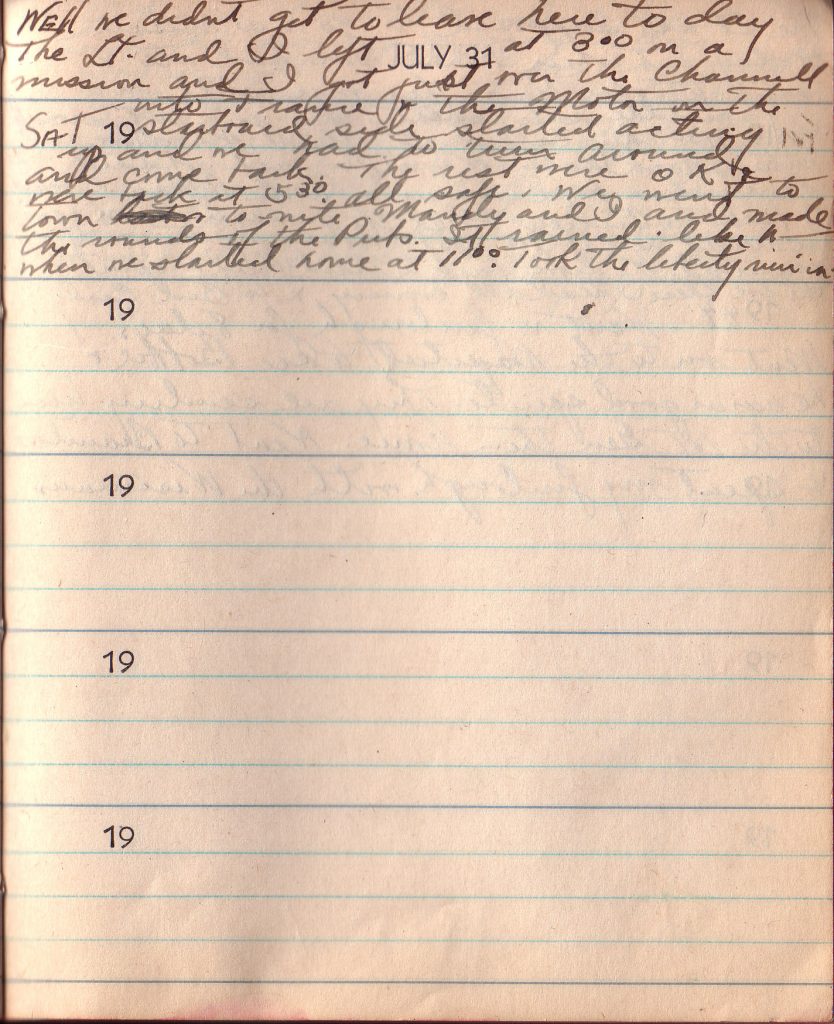 Well we didnt get to leave here to day
The Lt. and I left at 800 on a
JULY 31
mission and I got just over the Channell
into France & the Motor on the
SAT 19 starboard side started acting
up and we had to turn around
and come back. The rest were OK &
were back at 530 all safe. We went to
town to nite Mandy and I and made
the rounds of the Pubs. It rained like h
when we started home at 1100. Took the liberty run in
19
19
19
19